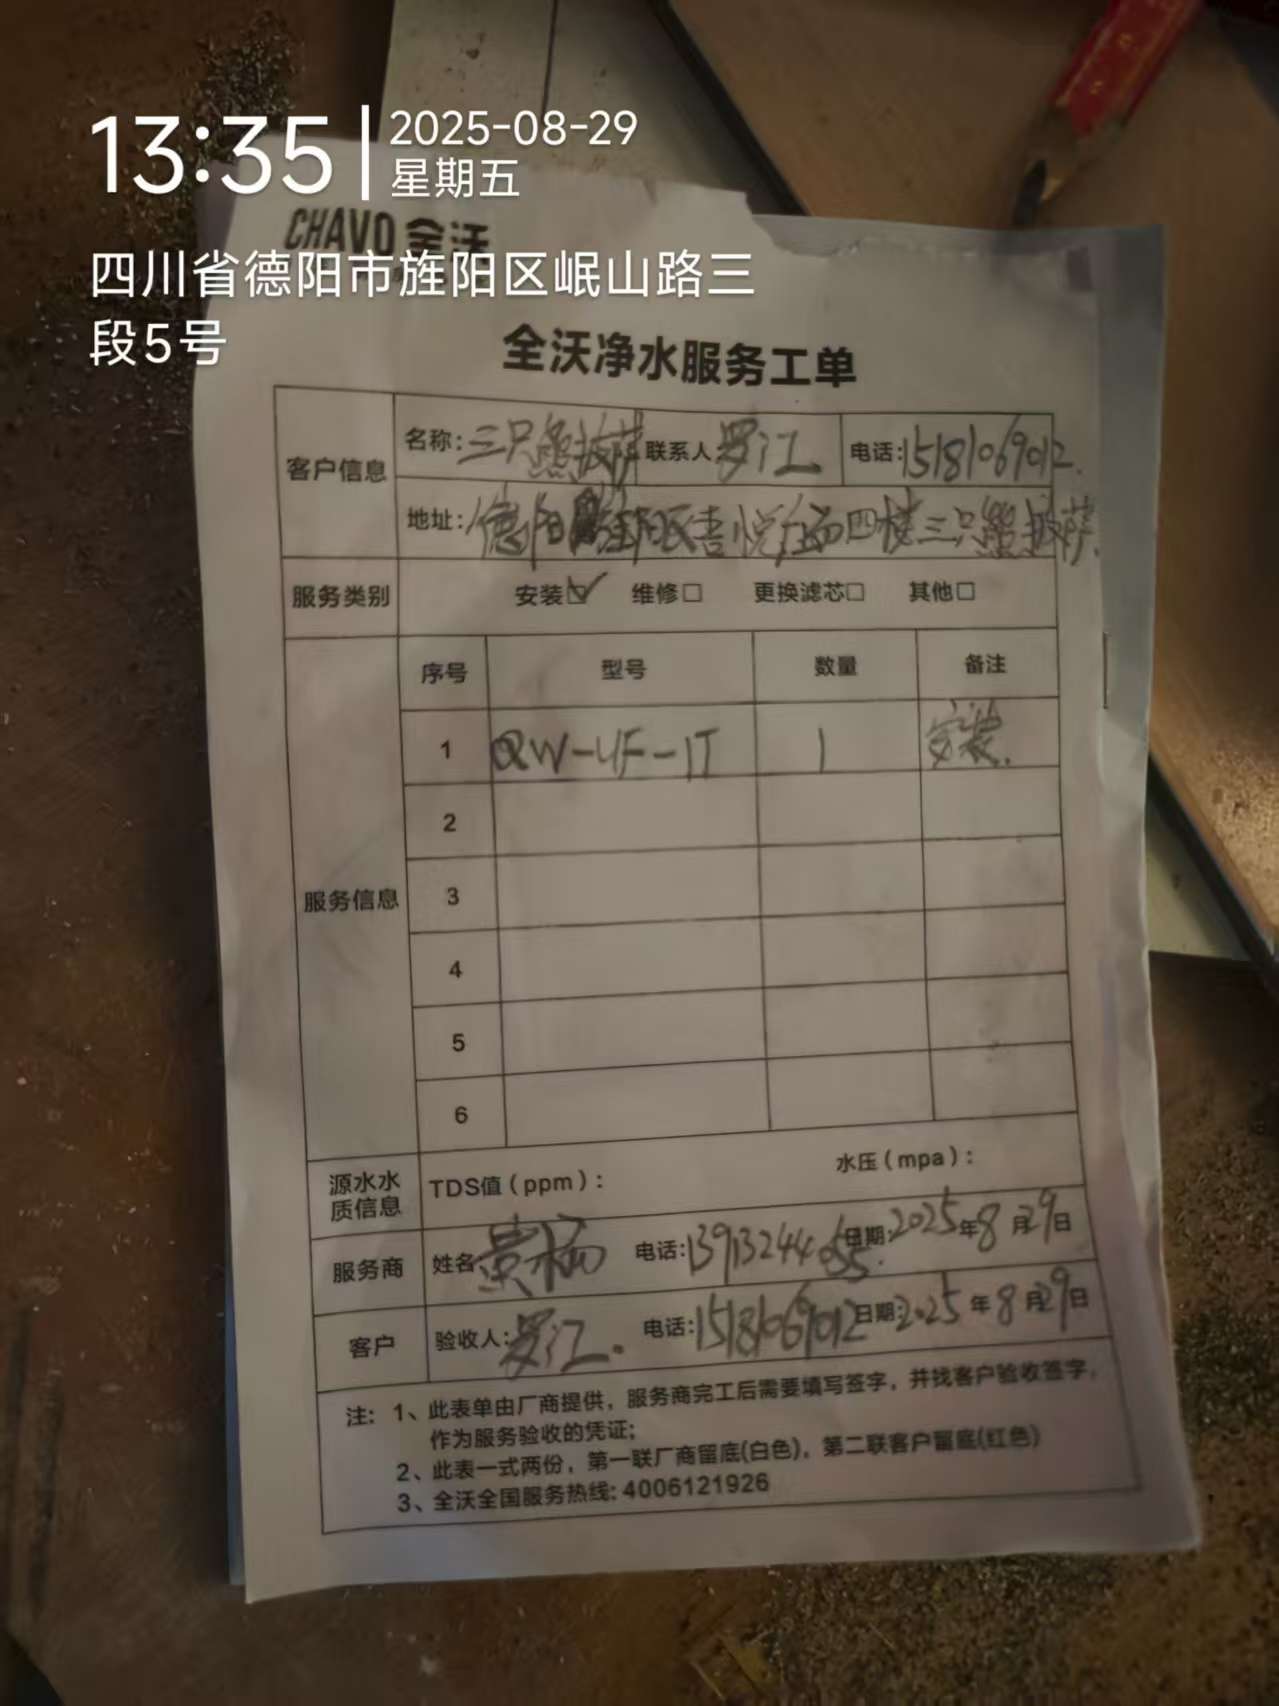 13:35
2025-08-29
星期五
四川省德阳市旌阳区岷山路三
段5号
CHAVO 全沃
全沃净水服务工单
客户信息
名称: 三只熊披萨 联系人: 罗江 电话: 15181069012.
地址: 德阳 吾悦广场四楼三只熊披萨.
服务类别 安装☑ 维修□ 更换滤芯□ 其他□
服务信息
序号 型号 数量 备注
1 QW-UF-1T 1 安装.
2
3
4
5
6
源水水质信息 TDS值(ppm): 水压(mpa):
服务商 姓名 黄杨 电话: 日期: 2025年8月29日
客户 验收人: 罗江. 电话: 15181069012 日期: 2025年8月29日
注: 1、此表单由厂商提供,服务商完工后需要填写签字,并找客户验收签字,
作为服务验收的凭证;
2、此表一式两份,第一联厂商留底(白色),第二联客户留底(红色)
3、全沃全国服务热线: 4006121926